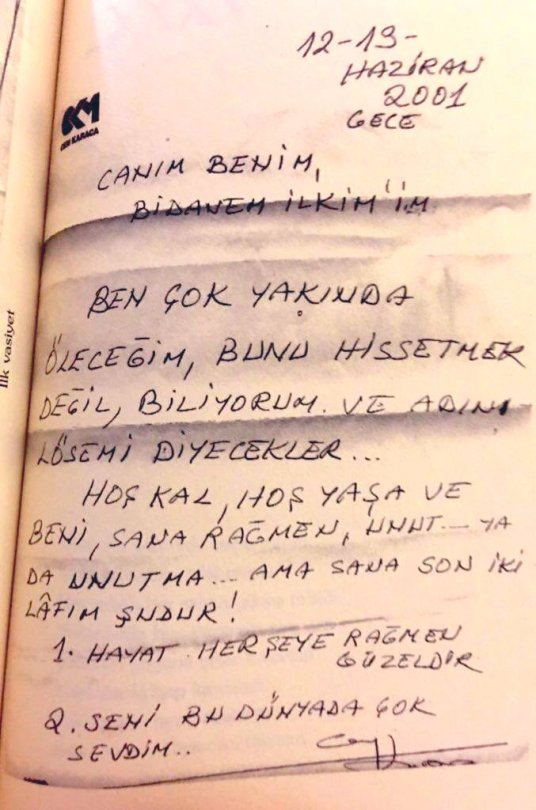 12-13-
HAZİRAN
2001
GECE
CEM KARACA
CANIM BENİM,
BİDANEM İLKİM'İM
BEN ÇOK YAKINDA
ÖLECEĞİM, BUNU HİSSETMEK
DEĞİL, BİLİYORUM. VE ADINI
LÖSEMİ DİYECEKLER...
HOŞ KAL, HOŞ YAŞA VE
BENİ, SANA RAĞMEN, UNUT... YA
DA UNUTMA... AMA SANA SON İKİ
LÂFIM ŞUDUR!
1. HAYAT HERŞEYE RAĞMEN
GÜZELDİR
2. SENİ BU DÜNYADA ÇOK
SEVDİM..
İlk vasiyet